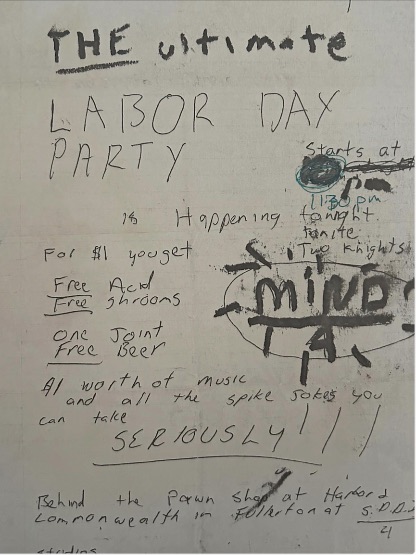 THE ultimate
LABOR DAY
PARTY
Starts at
pm
11:30 pm
is Happening tonight
tonite
Two Knights
For $1 you get
Free Acid
Free shrooms
MIND
One Joint
Free Beer
$1 worth of music
and all the spike jokes you
can take
SERIOUSLY!!!!
Behind the Pawn shop at
Commonwealth in Fullerton at
4